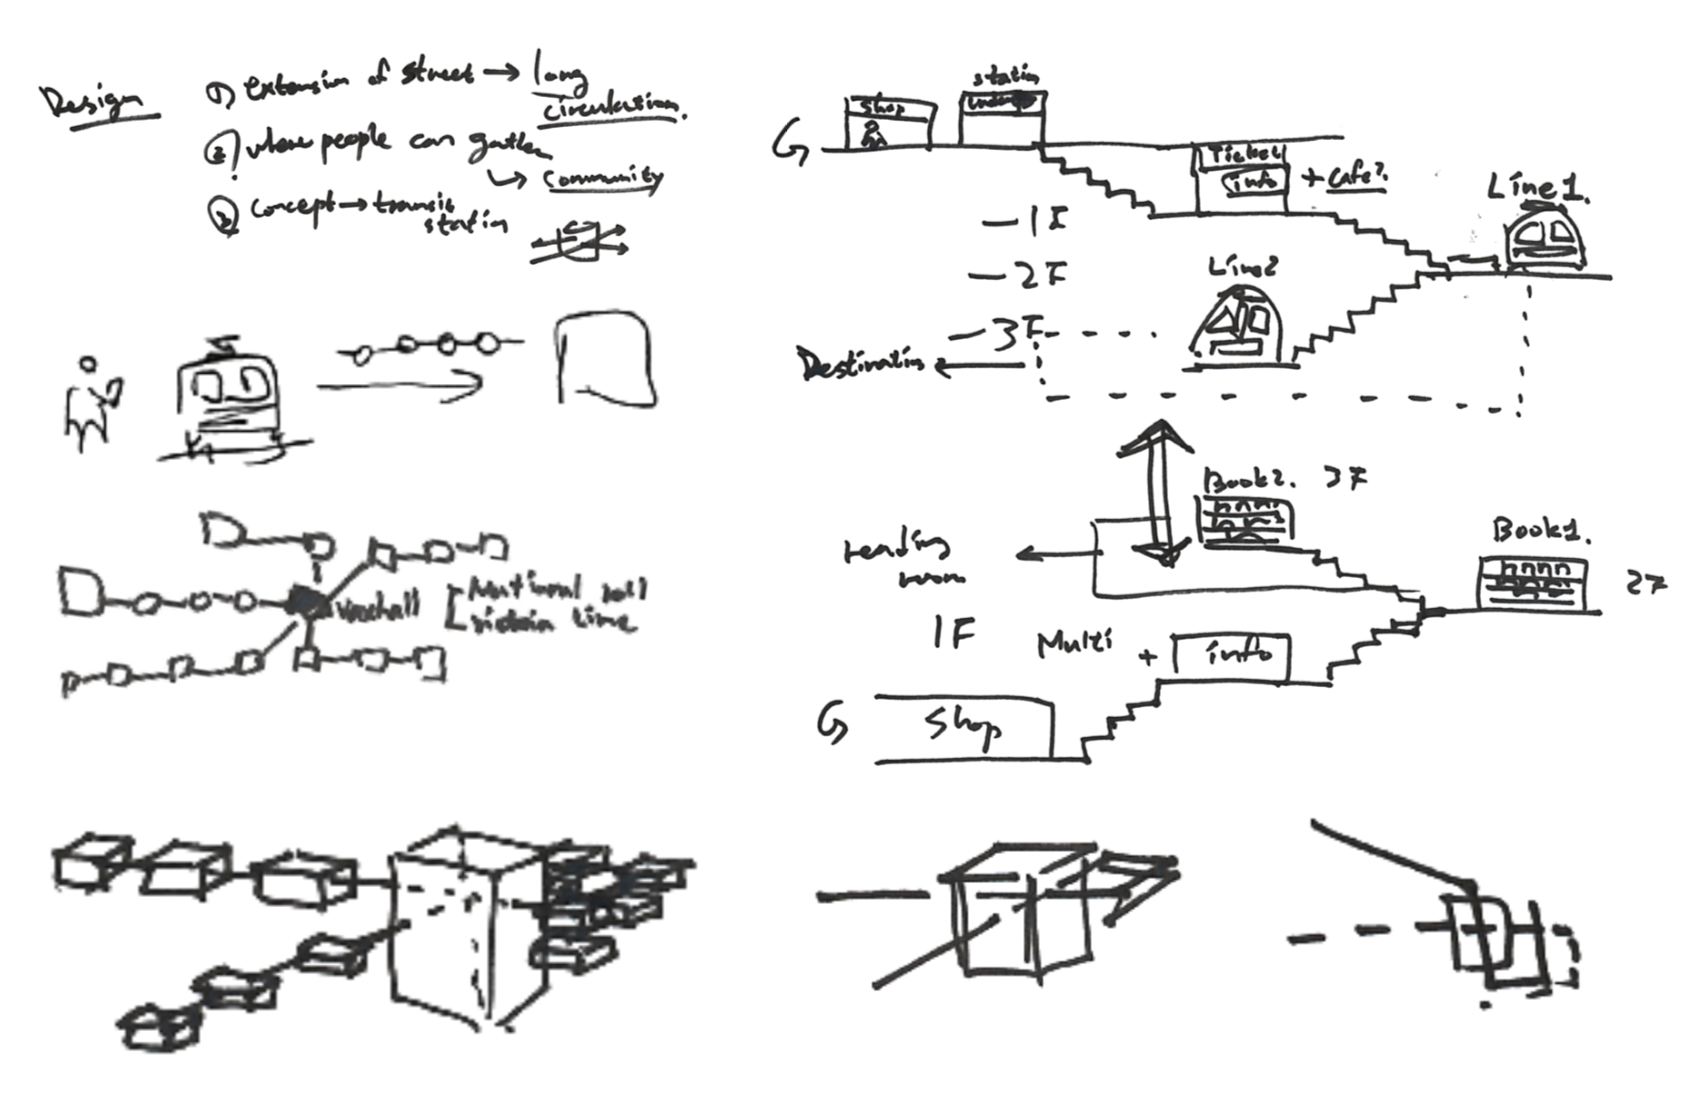 Design
① extension of street → long
circulation.
② where people can gather
↳ community
③ concept → transit
station
Vauxhall
line
station
shop
G
Ticket
info
+ cafe?
Line 1.
- 1F
- 2F
Line2
- 3F
Destination
Book2. 3F
Book1.
reading
room
2F
1F
Multi + info
G
Shop